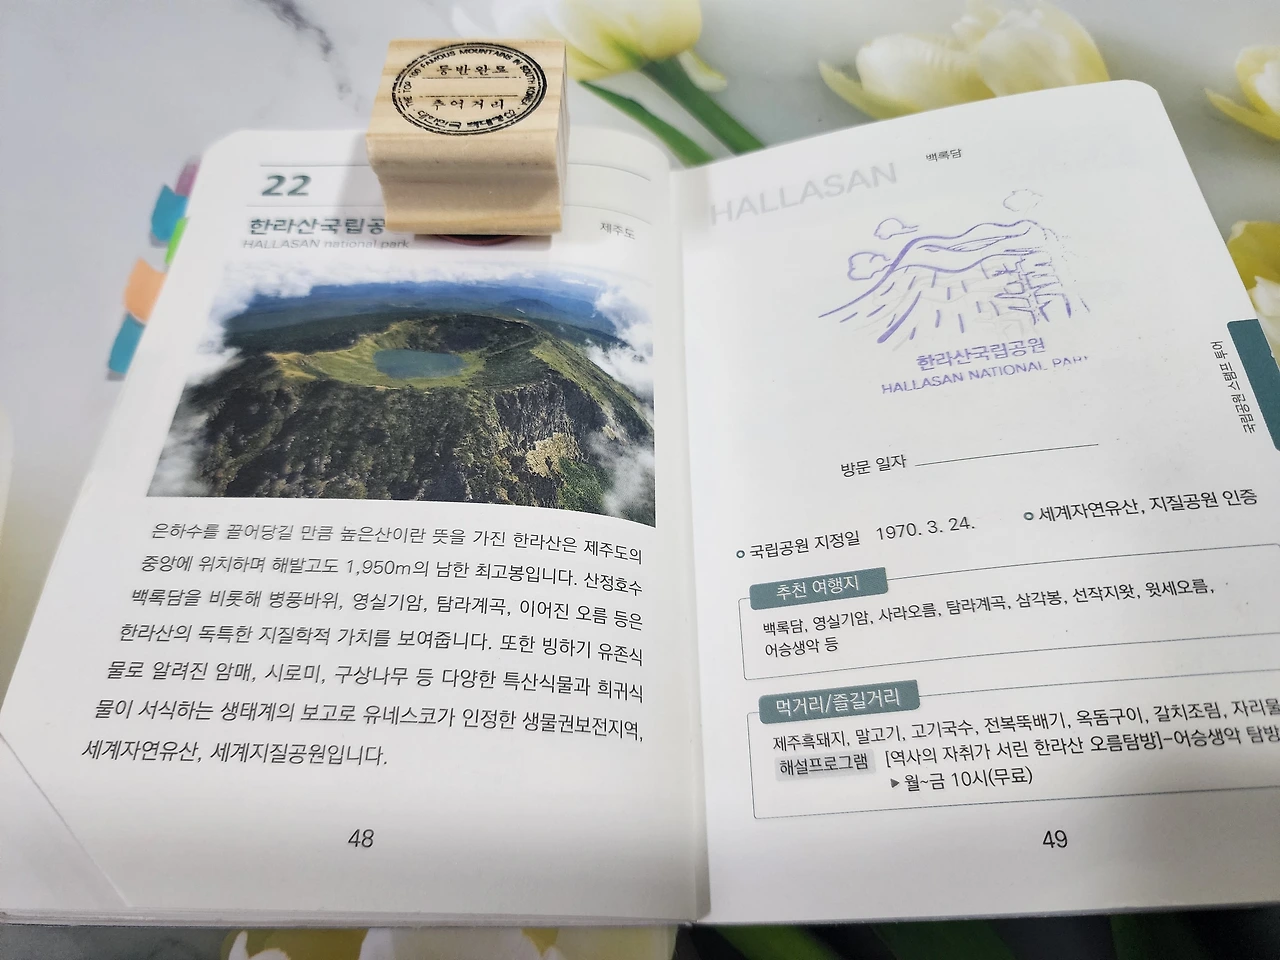 THE TOP 100 FAMOUS MOUNTAINS IN SOUTH KOREA
등반완료
추억거리
22
한라산국립공
HALLASAN national park
제주도
은하수를 끌어당길 만큼 높은산이란 뜻을 가진 한라산은 제주도의
중앙에 위치하며 해발고도 1,950m의 남한 최고봉입니다. 산정호수
백록담을 비롯해 병풍바위, 영실기암, 탐라계곡, 이어진 오름 등은
한라산의 독특한 지질학적 가치를 보여줍니다. 또한 빙하기 유존식
물로 알려진 암매, 시로미, 구상나무 등 다양한 특산식물과 희귀식
물이 서식하는 생태계의 보고로 유네스코가 인정한 생물권보전지역,
세계자연유산, 세계지질공원입니다.
48
HALLASAN
백록담
한라산국립공원
HALLASAN NATIONAL PARK
방문 일자
국립공원 지정일 1970. 3. 24.
세계자연유산, 지질공원 인증
추천 여행지
백록담, 영실기암, 사라오름, 탐라계곡, 삼각봉, 선작지왓, 윗세오름,
어승생악 등
먹거리/즐길거리
제주흑돼지, 말고기, 고기국수, 전복뚝배기, 옥돔구이, 갈치조림, 자리물
해설프로그램 [역사의 자취가 서린 한라산 오름탐방]-어승생악 탐방
▶월~금 10시(무료)
49
국립공원 스탬프 투어